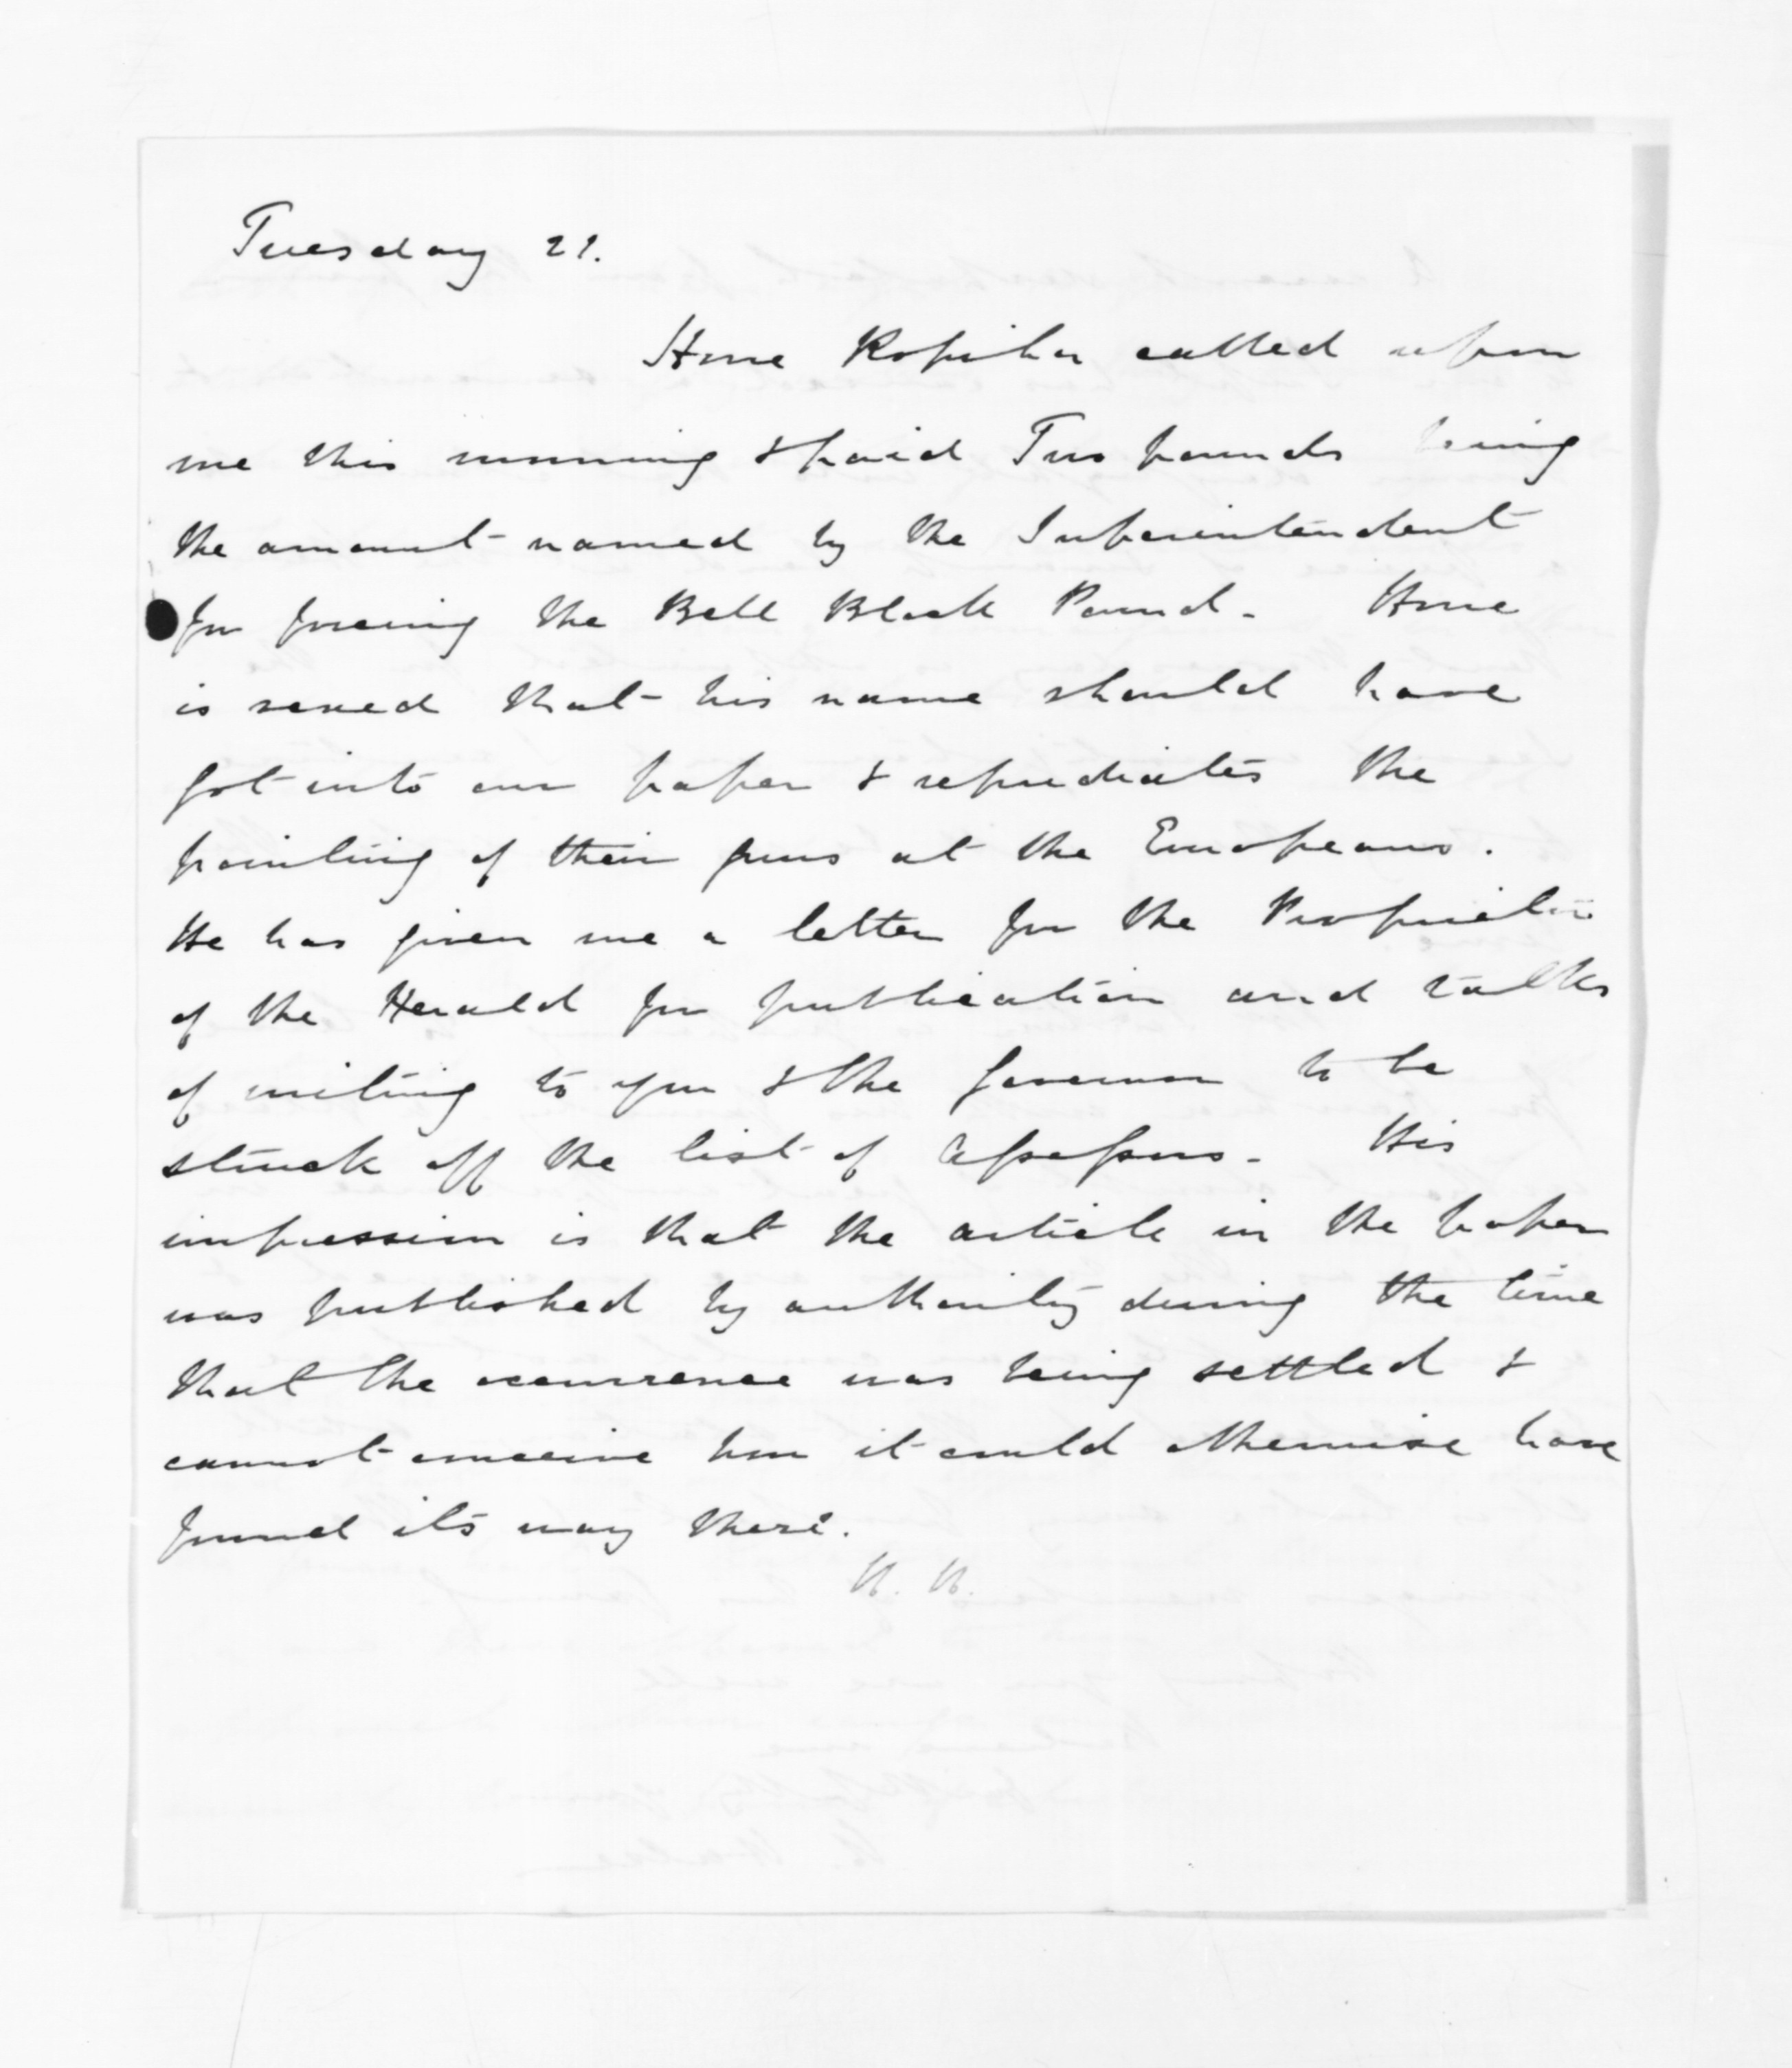 Tuesday 21.
Hone Ropiha called upon
me this morning & paid Two pounds being
the amount named by the Superintendent
for forcing the Bell Block Pound. Hone
is vexed that his name should have
got into our paper & repudiates the
pointing of their guns at the Europeans.
He has given me a letter for the Proprietors
of the Herald for publication and talks
of writing to you & the Governor to be
struck off the list of Assessors. His
impression is that the article in the paper
was published by authority during the time
that the occurrence was being settled &
cannot conceive how it could otherwise have
found its way there.
H. H.